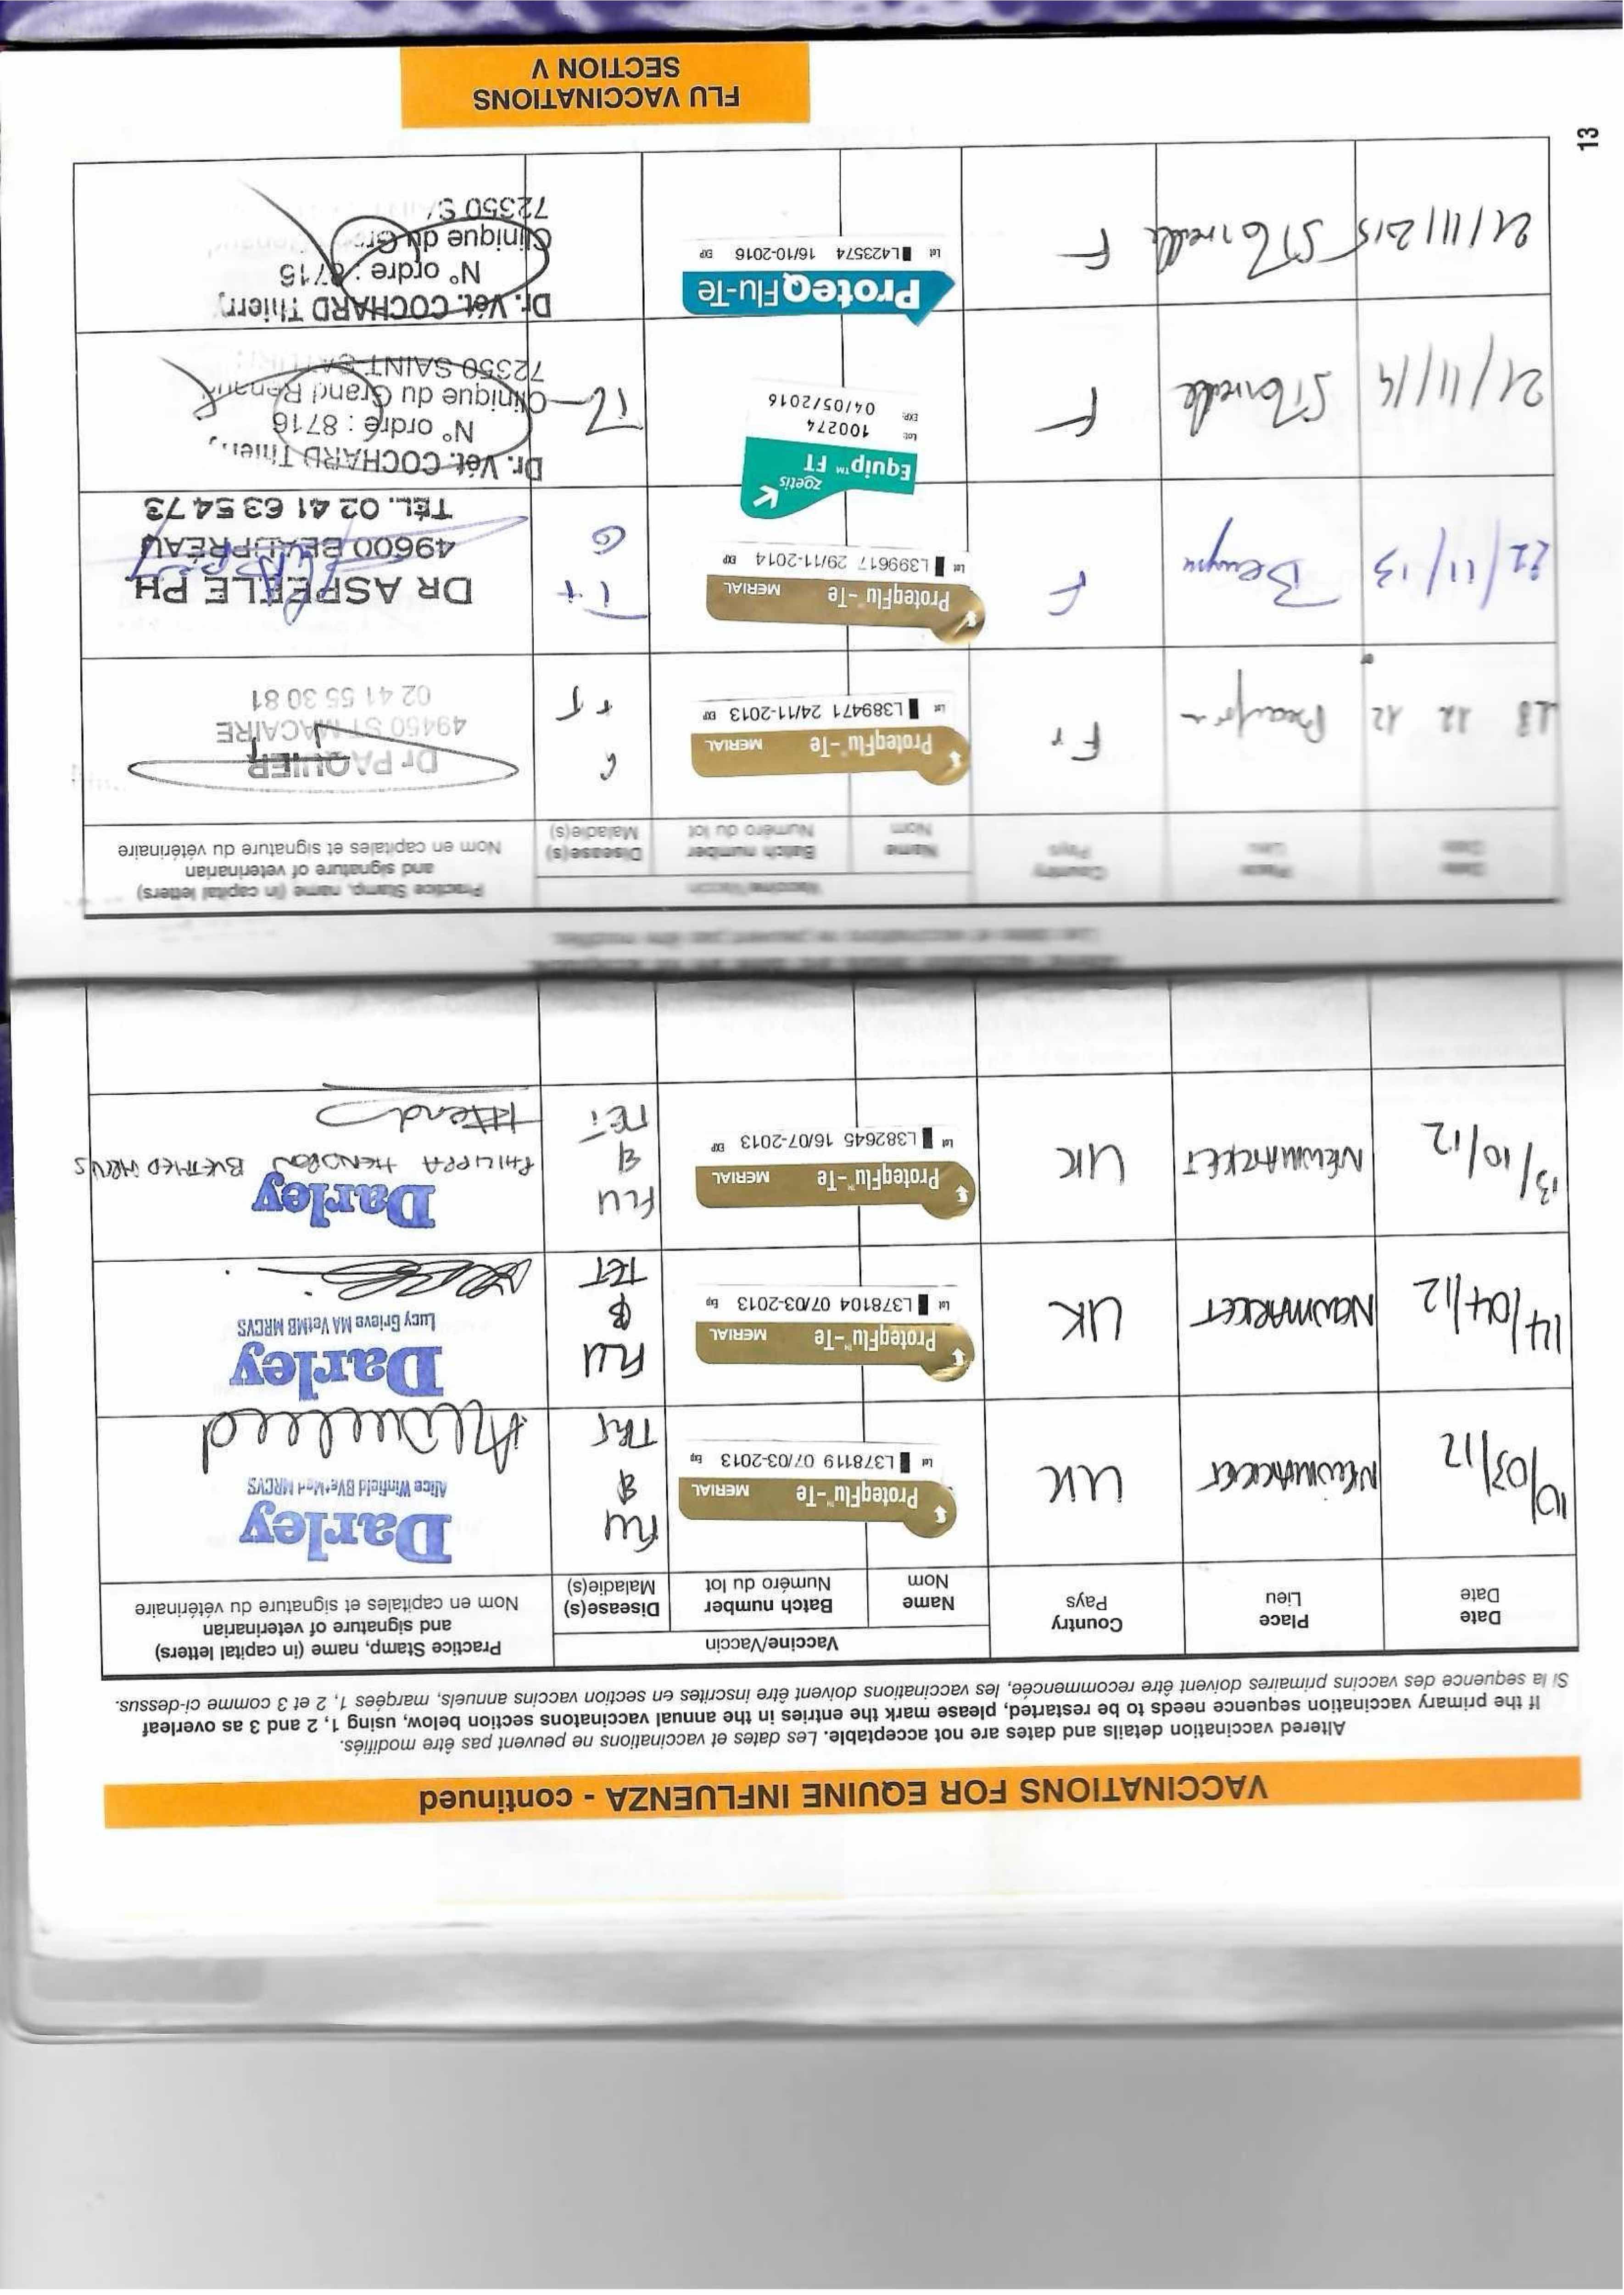 VACCINATIONS FOR EQUINE INFLUENZA - continued
Altered vaccination details and dates are not acceptable. Les dates et vaccinations ne peuvent pas être modifiés.
If the primary vaccination sequence needs to be restarted, please mark the entries in the annual vaccinatons section below, using 1, 2 and 3 as overleaf
Si la sequence des vaccins primaires doivent être recommencée, les vaccinations doivent être inscrites en section vaccins annuels, margées 1, 2 et 3 comme ci-dessus.
Date Date
Place Lieu
Country Pays
Vaccine/Vaccin
Name Nom
Batch number Numéro du lot
Disease(s) Maladie(s)
Practice Stamp, name (in capital letters)
and signature of veterinarian
Nom en capitales et signature du vétérinaire
10/03/12 NEWMARKET UK
ProteqFlu™-Te MERIAL
Lot L378119 07/03-2013 Exp
FLU & TET
Darley
Alice Winfield BVetMed MRCVS
14/04/12 NEWMARKET UK
ProteqFlu™-Te MERIAL
Lot L378104 07/03-2013 Exp
FLU & TET
Darley
Lucy Grieve MA VetMB MRCVS
13/10/12 NEWMARKET UK
ProteqFlu™-Te MERIAL
Lot L382645 16/07-2013 EXP
FLU & TET
Darley
PHILIPPA HENDERSON BVETMED MRCVS
Date Date
Place Lieu
Country Pays
Vaccine/Vaccin
Name Nom
Batch number Numéro du lot
Disease(s) Maladie(s)
Practice Stamp, name (in capital letters)
and signature of veterinarian
Nom en capitales et signature du vétérinaire
12 12 Fr
ProteqFlu™-Te MERIAL
Lot L389471 24/11-2013 EXP
G + T
Dr PAQUIER
49450 ST MACAIRE
02 41 55 30 81
22/11/13 F
ProteqFlu™-Te MERIAL
Lot L399617 29/11-2014 EXP
G
DR ASPEELE PH.
49600 BEAUPRÉAU
TÉL. 02 41 63 54 73
21/11/14 F
zoetis
Equip™ FT
Lot: 100274
EXP: 04/05/2016
Dr. Vét. COCHARD Thierry
N° ordre : 8716
Clinique du Grand Renaud
72350 SAINT
21/11/2015 F
ProteqFlu-Te
Lot L423574 16/10-2016 EXP
Dr. Vét. COCHARD Thierry
N° ordre : 8716
Clinique du Gr
72350 S
FLU VACCINATIONS
SECTION V
13